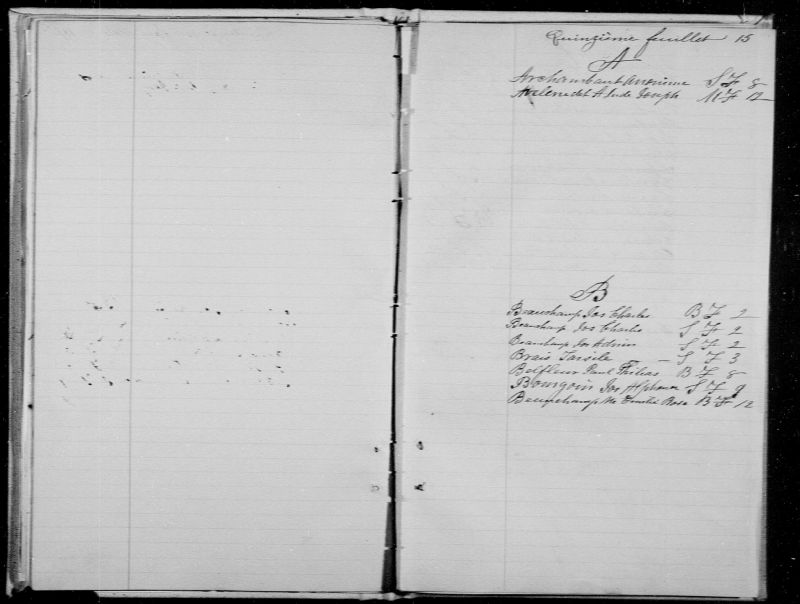 Quinzième feuillet 15
A
Archambault Anonime S F 8
Joseph M F 12
B
Beauchamp Jos Charles B F 2
Beauchamp Jos Charles S F 2
Beauchamp Jos Adrien S F 2
Brais Tarsile — S F 3
Belfleur Paul Philias B F 8
Bourgoin Jos Alphonse S F 9
Beauchamp Me Emelie Rosa B F 12